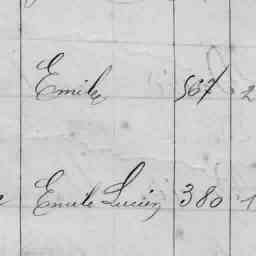 Emile 567 2
Emile Lucien 380